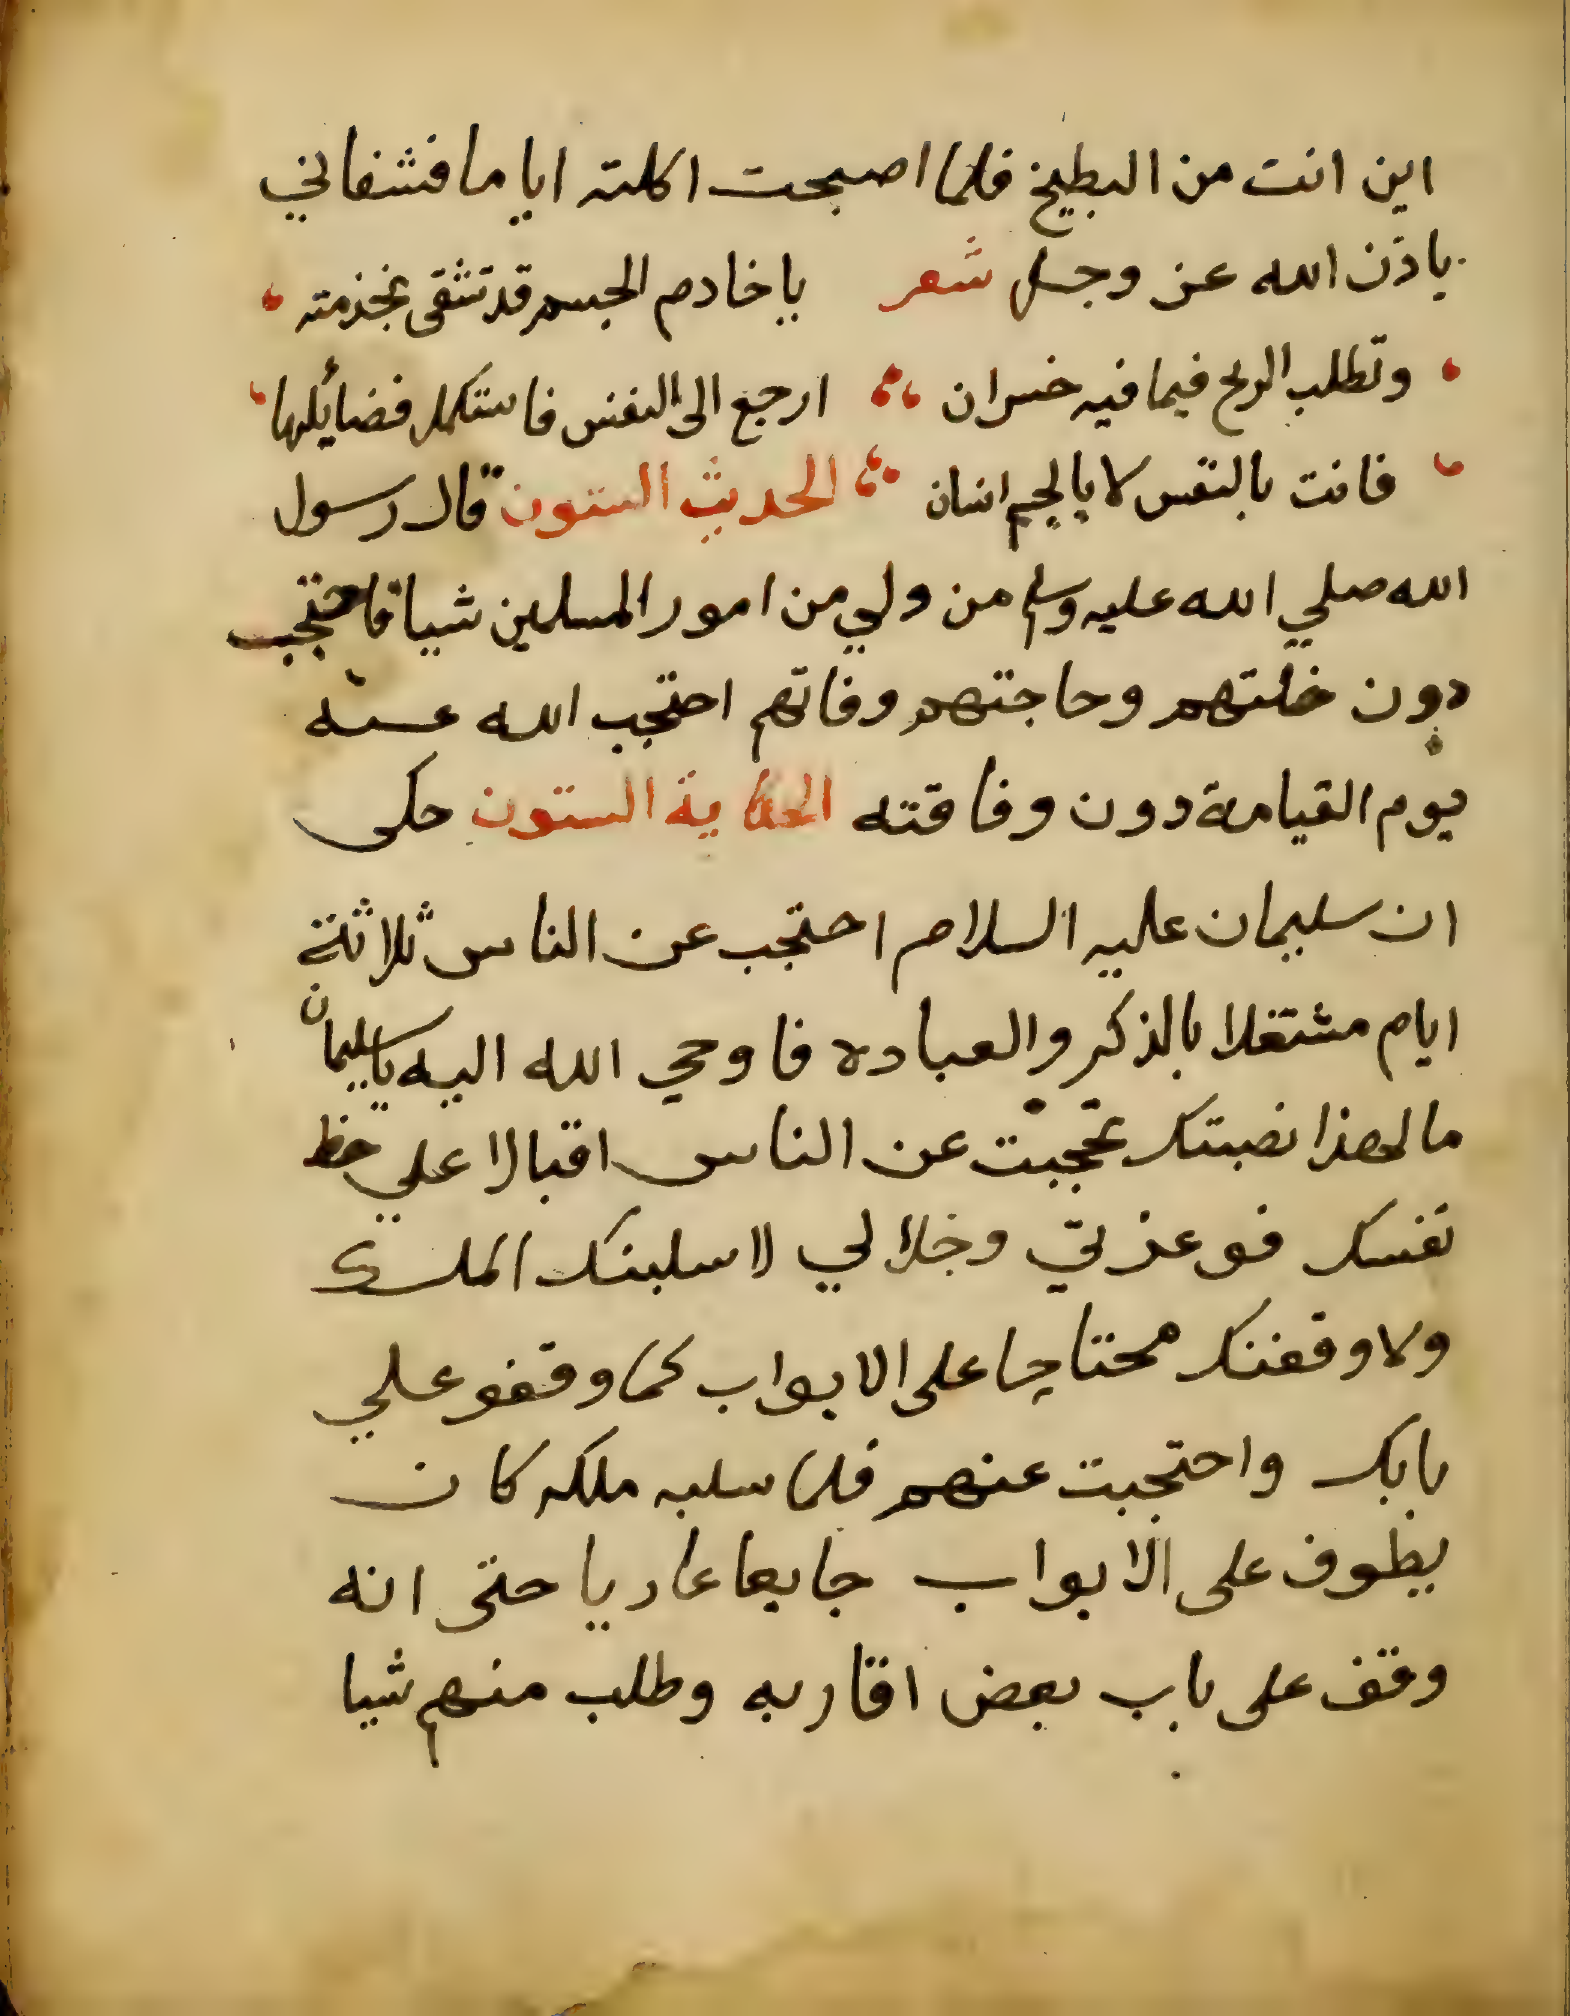 اين انت من البطيخ فلما اصبحت اكلته اياما فشفاني
باذن الله عز وجل شعر ياخادم الجسم قد تشقى بخدمته
وتطلب الربح فيما فيه خسران ارجع الى النفس فاستكمل فضائلها
فانت بالنفس لا بالجسم انسان الحديث الستون قال رسول
الله صلي الله عليه وسلم من ولي من امور المسلمين شيا فاحتجب
دون خلتهم وحاجتهم وفاتهم احتجب الله عنه
يوم القيامة دون وفاقته الحكاية الستون حكى
ان سليمان عليه السلام احتجب عن الناس ثلاثة
ايام مشتغلا بالذكر والعباده فاوحي الله اليه ياسليمان
ما لهذا نصبتك تحجبت عن الناس اقبالا علي حظ
نفسك فوعزتي وجلالي لاسلبنك الملك
ولاوقفنك محتاجا على الابواب كما وقفو علي
بابك واحتجبت عنهم فلما سلبه ملكه كان
يطوف على الابواب جايعا عاريا حتى انه
وقف على باب بعض اقاربه وطلب منهم شيا